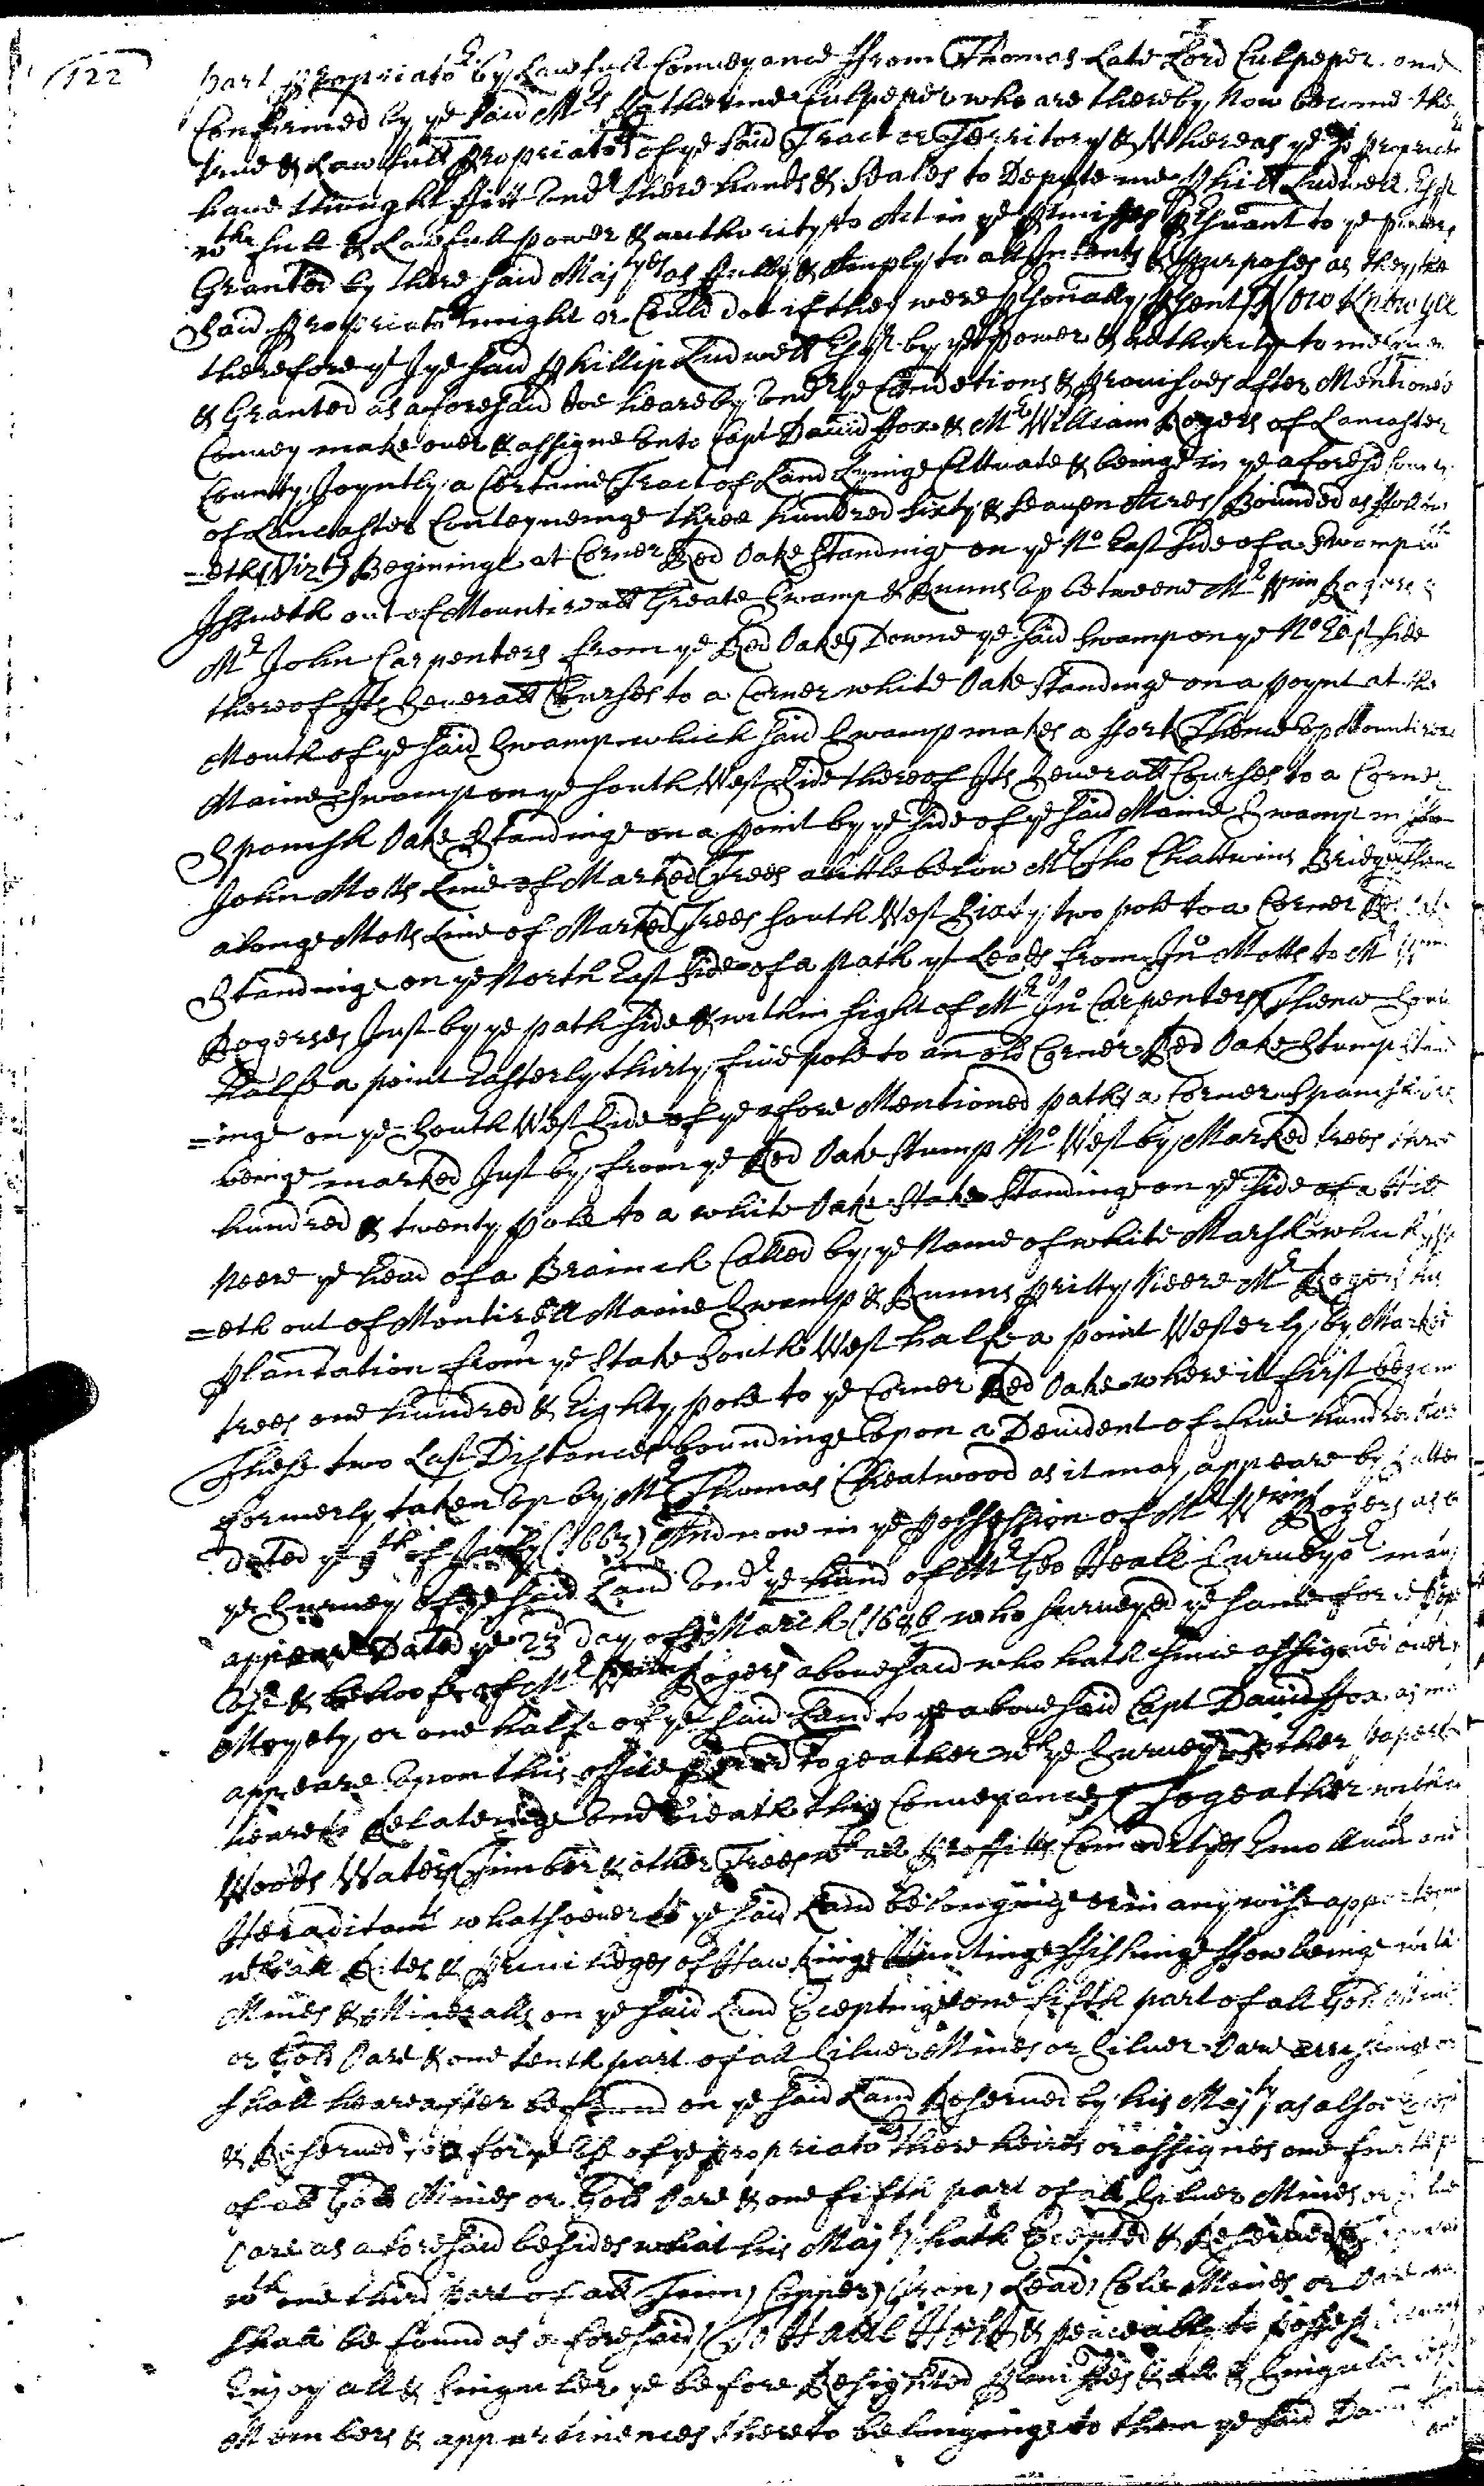 122
part Propriators by Lawfull Conveyance ffrom Thomas Late Lord Culpeper and
Confirmed by ye said Mrs Katherine Culpeper who are thereby Now become the
true & Lawfull Propriators of ye said Tract or Territory & Whereas ye sd
have thought ffitt undr there hands & Seales to Depute me Phill Ludwell Esqr
wth full & Lawfull power & authority to Act in ye Premisses Psuant to ye powers
Granted by there said Majtyes as ffully & Amply to all Intents & Purposes as they the
Said Propriators might or Could doe if they were Psonally Psent Now Know yee
therefore yt I ye said Phillip Ludwell Esqr by ye power & authority to me
& Granted as aforesaid doe heareby undr ye Condetions & Provisoes after Mentioned
Convey make over & assigne unto Capt David ffox & Mr William Rogers of Lancaster
County Joyntly a Certaine Tract of Land Lyinge Cittuate & beinge in ye aforesd
of Lancaster Conteyneinge three hundred sixty & seaven Acres Bounded as ffollow
=eth (Vizt) Begininge at Corner Red Oake Standinge on ye No East side of a Swamp wch
Issueth out of Mountireall Greate Swamp & Runns up betweene Mr Wm Rogers &
Mr John Carpenters from ye Red Oake Downe ye said Swamp on ye No East side
thereof Its Severall Courses to a Corner white Oake Standinge on a poynt at the
Mouth of ye said Swamp which said Swamp makes a ffork Thence up Mountireall
Maine Swamp on ye South West Side thereof Its Severall Courses to a Corner
Spanish Oake Standinge on a point by ye side of ye said Maine Swamp in
John Motts Line of Marked Trees a little below Mr Tho Chattwins Bridge Thence
alonge Motts Line of Marked Trees South West Sixty two pole to a Corner Red
Standinge on ye North East side of a path yt Leads from Jno Motts to Mr
Rogerses Just by ye path side & within sight of Mr Jno Carpenters Thence
halfe a point Easterly thirty five pole to an old Corner Red Oake Stump Stand
=inge on ye South West Side of ye afore Mentioned path a Corner Spanish
being marked Just by from ye Red Oake Stump No West by Marked trees
hundred & twenty pole to a white Oake Stake Standinge on ye side of a
neere ye head of a Brainch Called by ye Name of white Marsh which
=eth out of Montirell Maine Swamp & Runns Pritty Neere Mr Rogers his
Plantation from ye Stake South West halfe a point Westerly by Marked
trees one hundred & Eighty pole to ye Corner Red Oake where it first began
These two Last Distances boundinge upon a Devident of Five hundred
formerly taken up by Mr Thomas Cheatwood as it may appeare by Patten
dated ye 9th of July (1663) And now in ye Possession of Mr Wm Rogers as
ye Survey of ye said Land undr ye hand of Mr Geo Heale Surveyor may
appeare Dated ye 23 day of March (1696 who surveyed ye same for
use & behoofe of Mr Rogers abovesaid who hath since assigned over
Moyety or one halfe of ye said Land to ye abovesaid Capt David ffox as
appeare upon this office Togeather wth ye Survey & other papers
heareto Relateinge Conveyance Togeather with
Woods Waters Timber & other Trees wth all Proffitts Comodityes
Heraditamts whatsoever to ye said Land belonginge or in any wise
wth all Rites & Priviledges of Hawkinge Huntinge ffishinge ffowleinge with
Mines & Mineralls on ye said Land Exceptinge one fifth part of all Gold
or Gold Oare & one tenth part of all Silver Mines or Silver Oare
shall heareafter be found on ye said Land Reserved by his Majty as also
& Reserved for ye use of ye Propriators there heires or assignes one fourth
of all Gold Mines or Gold Oare & one fifth part of all Silver Mines or
Oare as aforesaid besides what his Majty hath Excepted & Reserved
wth one third Part of all Tinn, Copper, Iron, Lead, Cole Mines or Oare
shall be found as aforesaid, To Have Hold & peaceably to Possess
Enjoy all & Singuler ye before Resighted Premisses & all & Singuler
Members & appurtinences thereto belonginge to them ye said